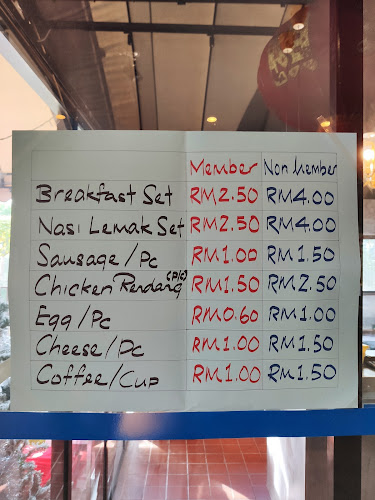 Member Non Member
Breakfast Set RM2.50 RM4.00
Nasi Lemak Set RM2.50 RM4.00
Sausage/Pc RM1.00 RM1.50
Chicken Rendang (P/C) RM1.50 RM2.50
Egg/Pc RM0.60 RM1.00
Cheese/Pc RM1.00 RM1.50
Coffee/Cup RM1.00 RM1.50